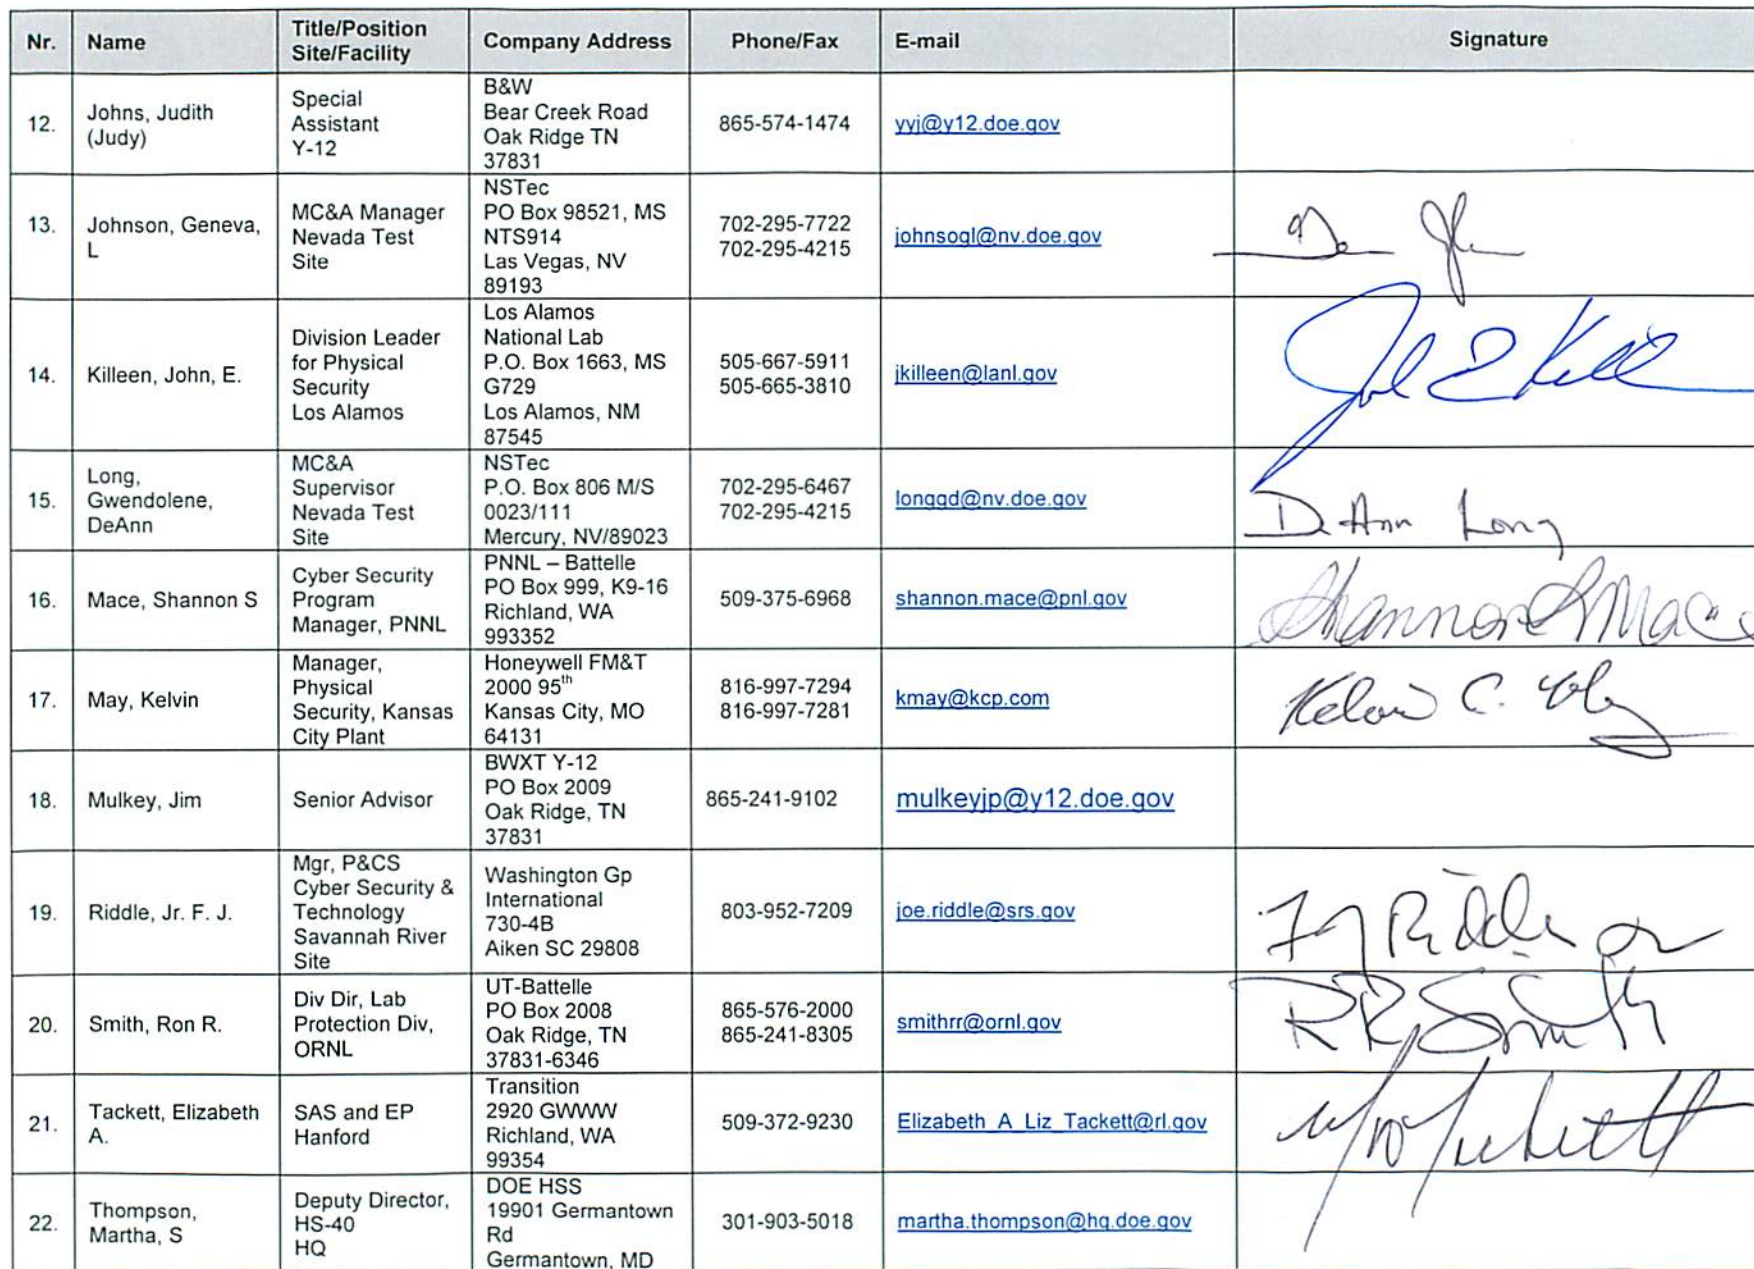 Nr. Name Title/Position Site/Facility Company Address Phone/Fax E-mail Signature
12.
Johns, Judith
(Judy)
Special
Assistant
Y-12
B&W
Bear Creek Road
Oak Ridge TN
37831
865-574-1474
yyj@y12.doe.gov
13.
Johnson, Geneva,
L
MC&A Manager
Nevada Test
Site
NSTec
PO Box 98521, MS
NTS914
Las Vegas, NV
89193
702-295-7722
702-295-4215
johnsogl@nv.doe.gov
14.
Killeen, John, E.
Division Leader
for Physical
Security
Los Alamos
Los Alamos
National Lab
P.O. Box 1663, MS
G729
Los Alamos, NM
87545
505-667-5911
505-665-3810
jkilleen@lanl.gov
15.
Long,
Gwendolene,
DeAnn
MC&A
Supervisor
Nevada Test
Site
NSTec
P.O. Box 806 M/S
0023/111
Mercury, NV/89023
702-295-6467
702-295-4215
longgd@nv.doe.gov
DeAnn Long
16.
Mace, Shannon S
Cyber Security
Program
Manager, PNNL
PNNL – Battelle
PO Box 999, K9-16
Richland, WA
993352
509-375-6968
shannon.mace@pnl.gov
Shannon S Mace
17.
May, Kelvin
Manager,
Physical
Security, Kansas
City Plant
Honeywell FM&T
2000 95th
Kansas City, MO
64131
816-997-7294
816-997-7281
kmay@kcp.com
Kelvin C. May
18.
Mulkey, Jim
Senior Advisor
BWXT Y-12
PO Box 2009
Oak Ridge, TN
37831
865-241-9102
mulkeyjp@y12.doe.gov
19.
Riddle, Jr. F. J.
Mgr, P&CS
Cyber Security &
Technology
Savannah River
Site
Washington Gp
International
730-4B
Aiken SC 29808
803-952-7209
joe.riddle@srs.gov
FJ Riddle Jr
20.
Smith, Ron R.
Div Dir, Lab
Protection Div,
ORNL
UT-Battelle
PO Box 2008
Oak Ridge, TN
37831-6346
865-576-2000
865-241-8305
smithrr@ornl.gov
RR Smith
21.
Tackett, Elizabeth
A.
SAS and EP
Hanford
Transition
2920 GWWW
Richland, WA
99354
509-372-9230
Elizabeth_A_Liz_Tackett@rl.gov
22.
Thompson,
Martha, S
Deputy Director,
HS-40
HQ
DOE HSS
19901 Germantown
Rd
Germantown, MD
301-903-5018
martha.thompson@hq.doe.gov